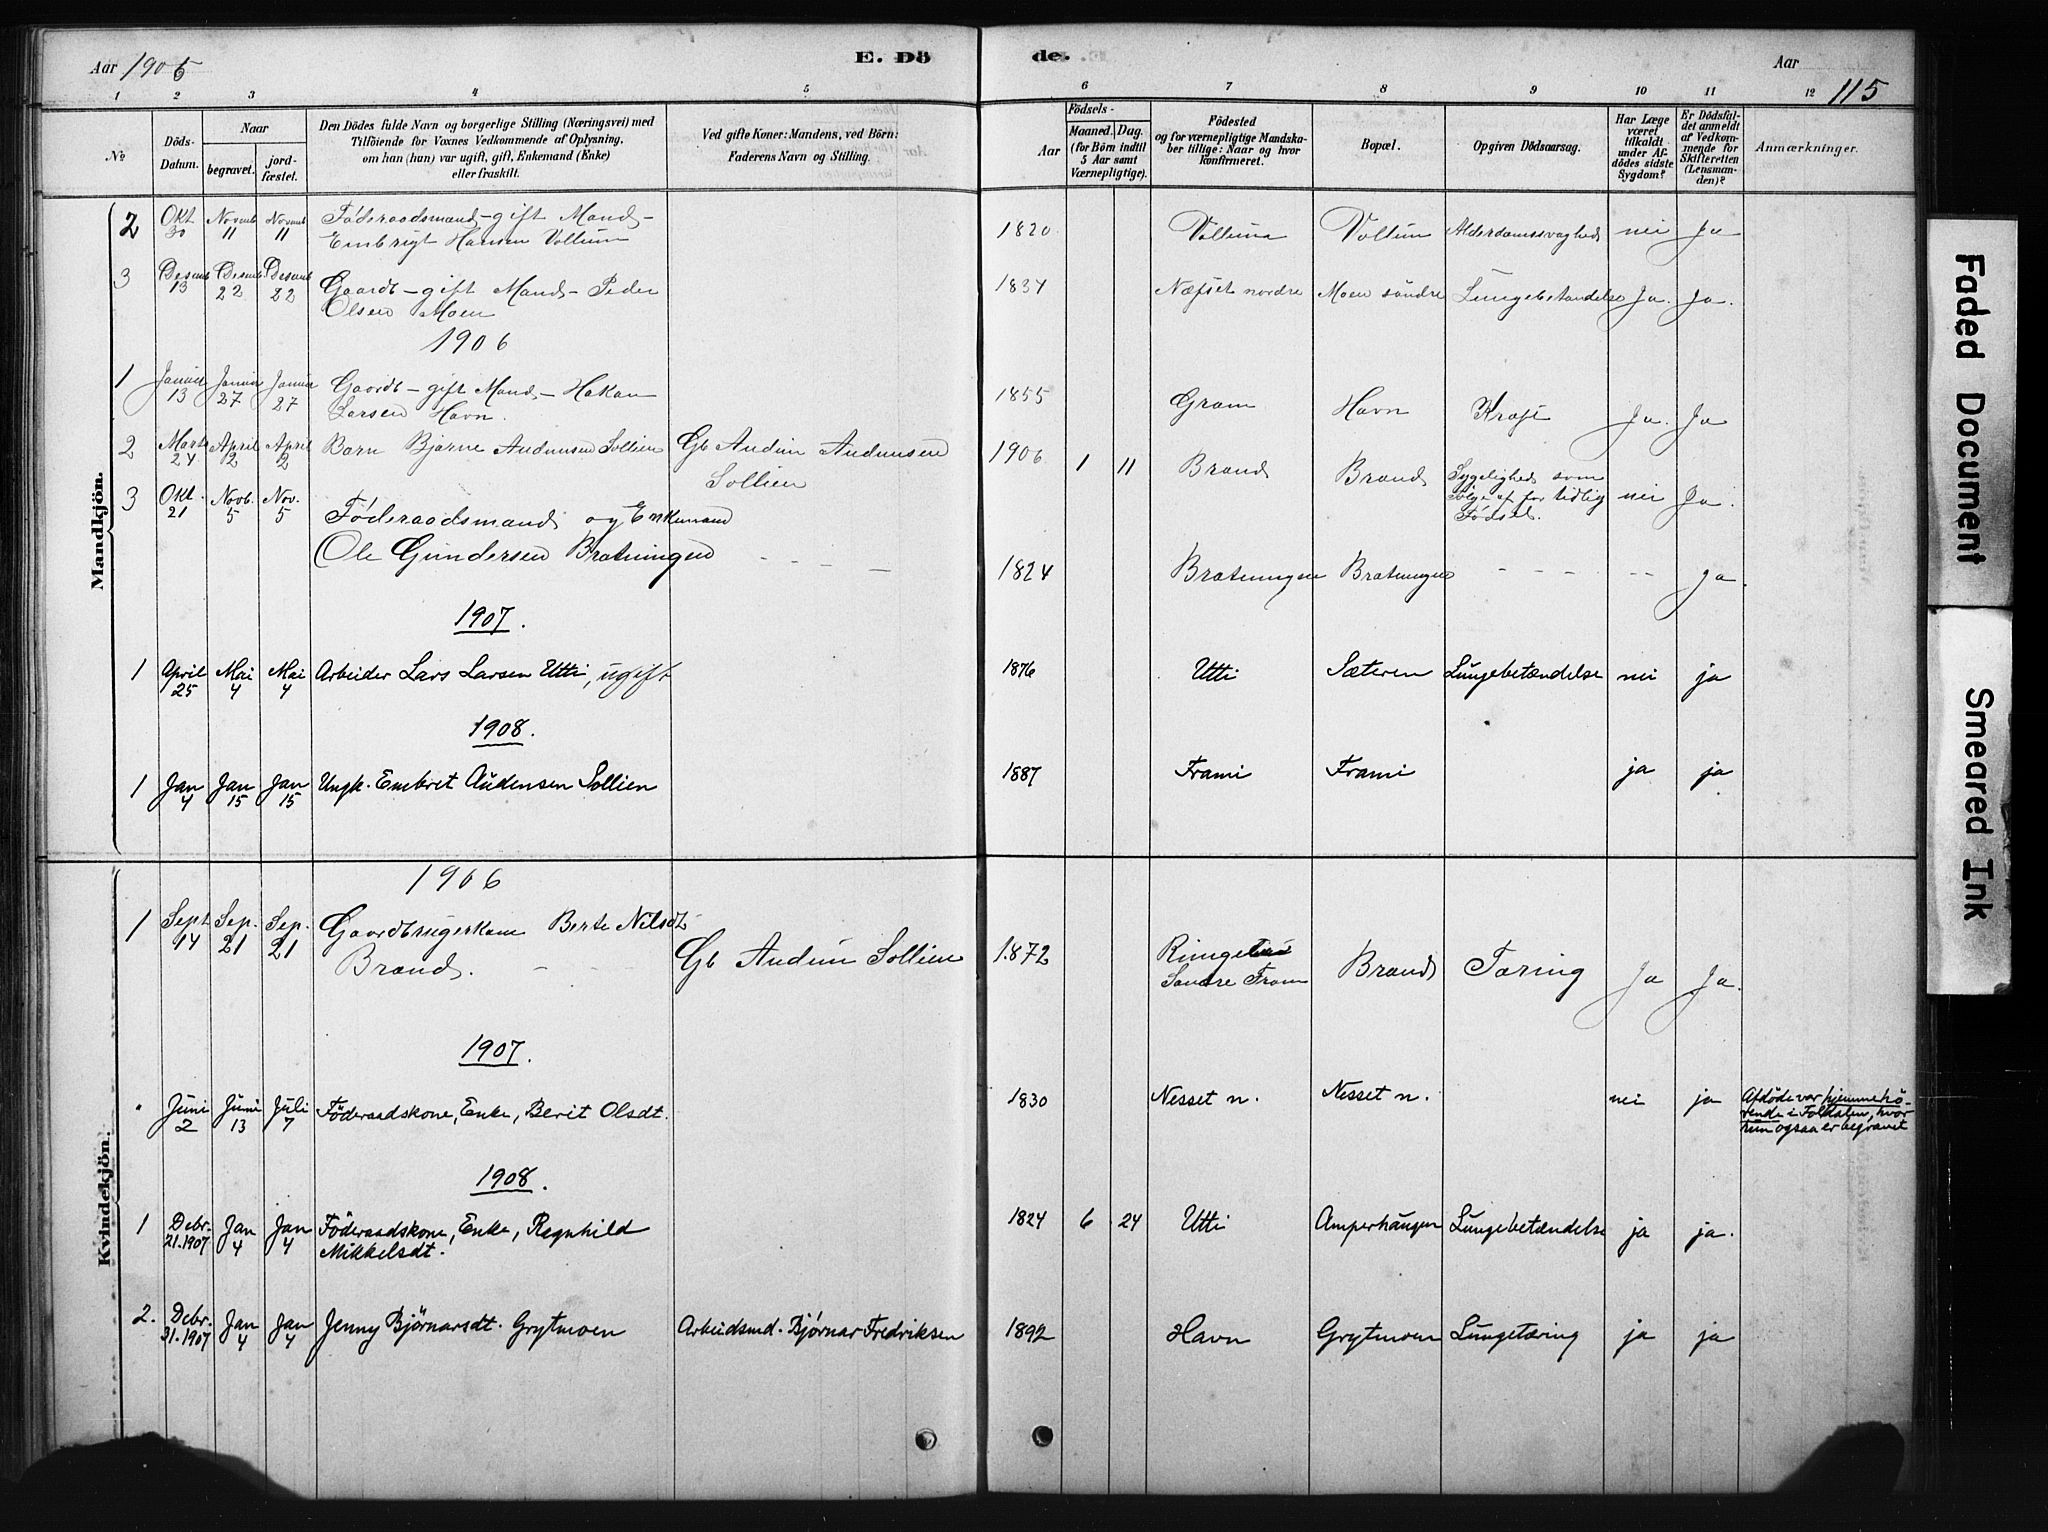 Aar 1905
E. Dö
de.
Aar
115
1 2 3 4 5 6 7 8 9 10 11 12
No
Döds-Datum.
Naar
begravet.
jord-fæstet.
Den Dödes fulde Navn og borgerlige Stilling (Næringsvei) med
Tilföiende for Voxnes Vedkommende af Oplysning,
om han (hun) var ugift, gift, Enkemand (Enke)
eller fraskilt.
Ved gifte Koner: Mandens, ved Börn:
Faderens Navn og Stilling.
Födsels-
Aar
Maaned. Dag.
(for Börn indtil
5 Aar samt
Værnepligtige).
Födested
og for værnepligtige Mandska-
ber tillige: Naar og hvor
konfirmeret.
Bopæl.
Opgiven Dödsaarsag.
Har Læge
været
tilkaldt
under Af-
dödes sidste
Sygdom?
Er Dödsfal-
det anmeldt
af Vedkom-
mende for
Skifteretten
(Lensman-
den)?
Anmærkninger.
Mandkjön.
2 Okt 30 Novemb 11 Novemb 11 Føderaadsmand - gift Mand -
Embrigt Hansen Vollum 1820 Vollum Vollum Alderdomssvaghed nei Ja
3 Desemb 13 Desemb 22 Desemb 22 Gaardb - gift Mand - Peder
Olsen Moen 1834 Næfset nordre Moen søndre Lungebetændelse Ja. Ja.
1906
1 Januar 13 Januar 27 Januar 27 Gaardb - gift Mand - Hakon
Larsen Havn. 1855 Gram Havn Kræft Ja. Ja
2 Marts 24 April 2 April 2 Barn Bjarne Audunsen Sollien Gb Audun Audunsen
Sollien 1906 1 11 Brand Brand Sygelighed som
følge af for tidlig
Fødsel. nei Ja.
3 Okt. 21 Novb. 5 Nov. 5 Føderaadsmand og Enkemand
Ole Gundersen Bratningen - - - - 1824 Bratningen Bratningen - - - - - - Ja.
1907.
1 April 25 Mai 4 Mai 4 Arbeider Lars Larsen Utti, ugift 1876 Utti Sæteren Lungebetændelse nei ja
1908.
1 Jan 4 Jan 15 Jan 15 Ungk. Embret Audensen Sollien 1887 Frami Frami ja ja
Kvindekjön.
1906
1 Sept 14 Sep. 21 Sep. 21 Gaardbrugerkone Berte Nilsdt
Brand. - - - Gb Audun Sollien 1872
Søndre Fram Brand Tæring Ja Ja.
1907.
" Juni 2 Juni 13 Juli 7 Föderaadskone, Enke, Berit Olsdt. 1830 Nesset n. Nesset n. nei ja Afdöde var hjemmehö-
rende i Foldalen, hvor
hun ogsaa er begravet
1908.
1 Debr. 21.1907 Jan 4 Jan 4 Föderaadskone, Enke, Ragnhild
Mikkelsdt. 1824 6 24 Utti Amperhaugen Lungebetændelse ja ja.
2. Debr. 31.1907 Jan 4 Jan 4 Jenny Bjørnarsdt. Grytmoen Arbeidsmd. Bjørnar Fredriksen 1892 Havn Grytmoen Lungetæring ja ja
Faded Document
Smeared Ink